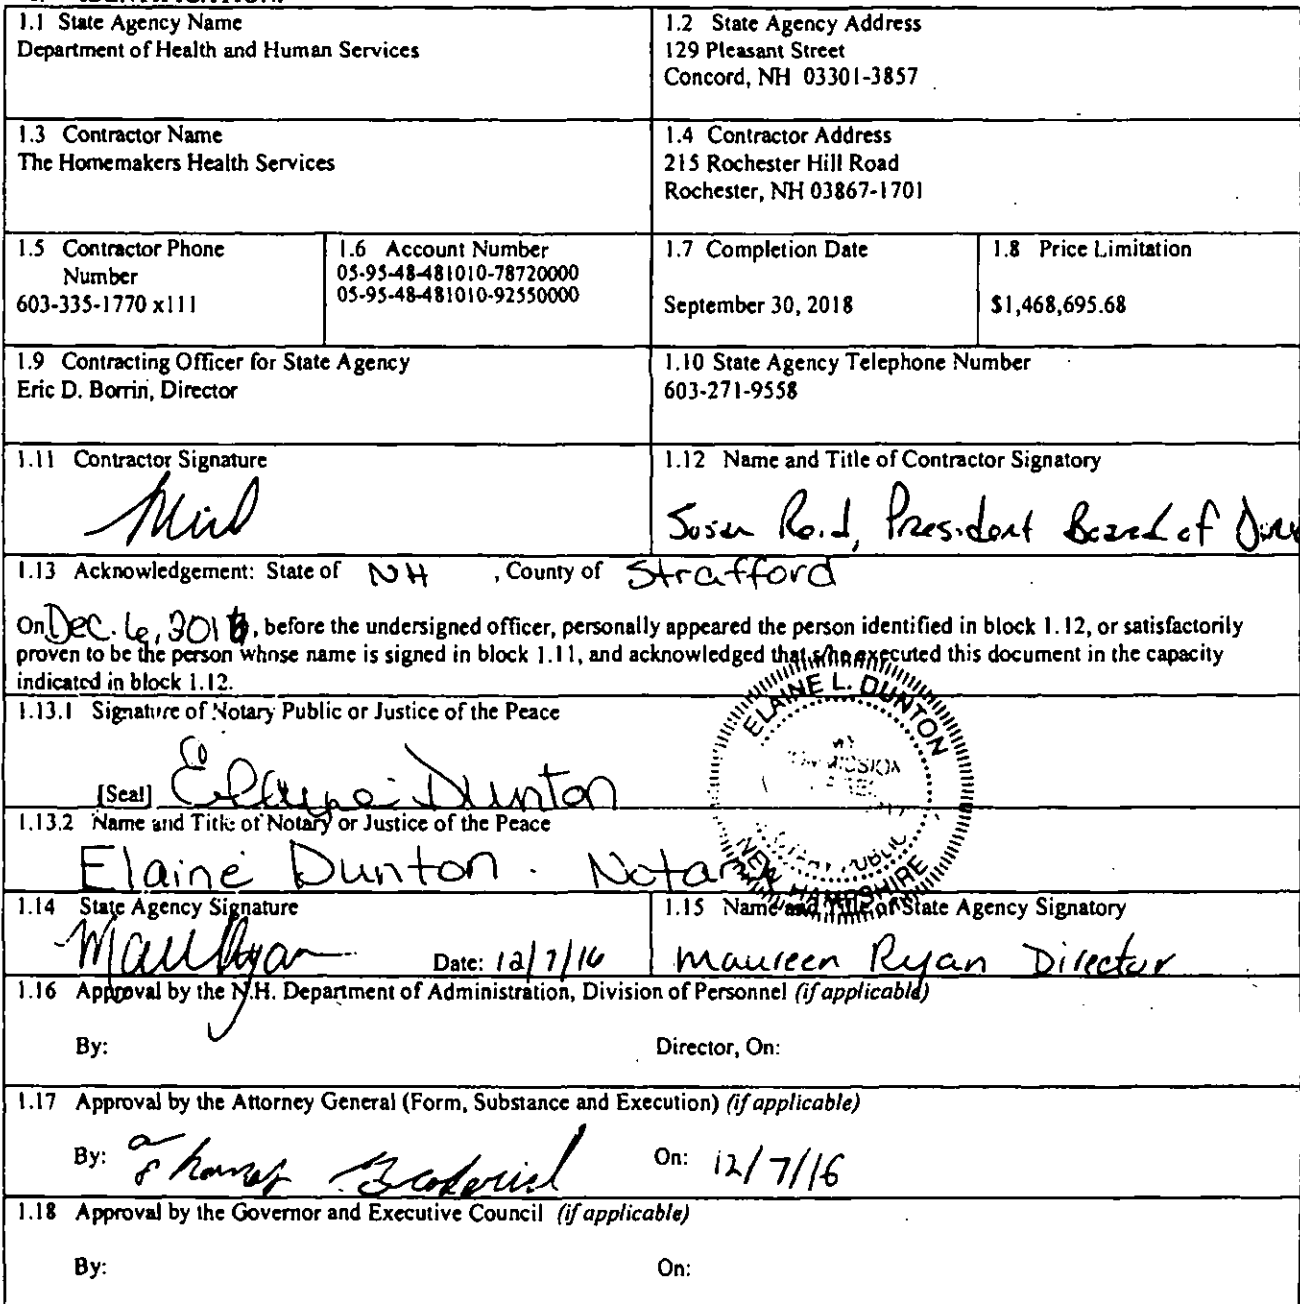 1.1 State Agency Name
Department of Health and Human Services
1.2 State Agency Address
129 Pleasant Street
Concord, NH 03301-3857
1.3 Contractor Name
The Homemakers Health Services
1.4 Contractor Address
215 Rochester Hill Road
Rochester, NH 03867-1701
1.5 Contractor Phone
Number
603-335-1770 x111
1.6 Account Number
05-95-48-481010-78720000
05-95-48-481010-92550000
1.7 Completion Date
September 30, 2018
1.8 Price Limitation
$1,468,695.68
1.9 Contracting Officer for State Agency
Eric D. Borrin, Director
1.10 State Agency Telephone Number
603-271-9558
1.11 Contractor Signature
1.12 Name and Title of Contractor Signatory
Susan Reid, President Board of
1.13 Acknowledgement: State of NH , County of Strafford
On Dec. 6, 2016, before the undersigned officer, personally appeared the person identified in block 1.12, or satisfactorily
proven to be the person whose name is signed in block 1.11, and acknowledged that s/he executed this document in the capacity
indicated in block 1.12.
1.13.1 Signature of Notary Public or Justice of the Peace
[Seal] Elaine Dunton
ELAINE L. DUNTON
MY
COMMISSION
NOTARY PUBLIC
NEW HAMPSHIRE
1.13.2 Name and Title of Notary or Justice of the Peace
Elaine Dunton. Notary
1.14 State Agency Signature
Date: 12/7/16
1.15 Name and Title of State Agency Signatory
Maureen Ryan Director
1.16 Approval by the N.H. Department of Administration, Division of Personnel (if applicable)
By:
Director, On:
1.17 Approval by the Attorney General (Form, Substance and Execution) (if applicable)
By:
On: 12/7/16
1.18 Approval by the Governor and Executive Council (if applicable)
By:
On: